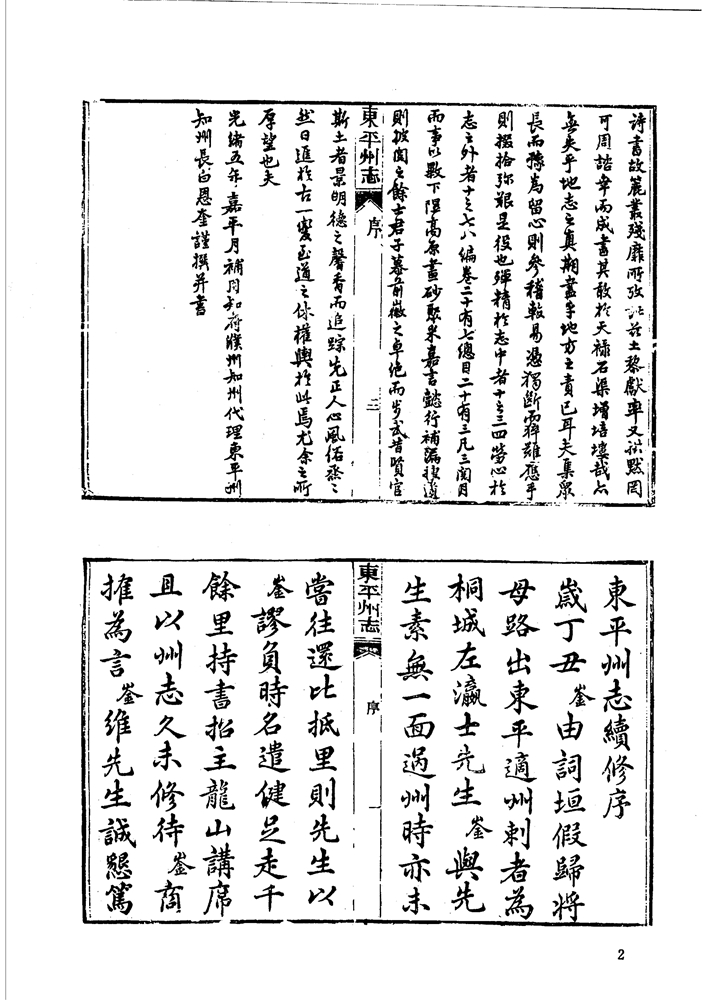 詩書故簏叢殘靡所攷訂茲土黎獻率又祕默罔
可周諮幸而成書其敢於天祿石渠增培塿哉亦
無失乎地志之真期盡乎地方之責已耳夫集眾
長而豫為留心則參稽較易憑獨斷而猝難應手
則掇拾弥艱是役也殫精於志中者十之三四勞心於
志之外者十之七八編卷二十有七總目二十有三凡三閱月
而事以敷下隰高原畫砂聚米嘉言懿行補漏搜遺
則披閱之餘士君子慕前徽之卓絕而步武昔賢官
東平州志
序
三
斯土者景明德之馨香而追踪先正人心風俗烝烝
然日進於古一變至道之休權輿於此焉尤余之所
厚望也夫
光緒五年嘉平月補用知府濮州知州代理東平州
知州長白恩奎謹撰并書
東平州志續修序
歲丁丑崟由詞垣假歸將
母路出東平適州刺者為
桐城左瀛士先生崟與先
生素無一面過州時亦未
東平州志
序
一
嘗往還比抵里則先生以
崟謬負時名遣健足走千
餘里持書招主龍山講席
且以州志久未修待崟商
搉為言崟維先生誠懇篤
2